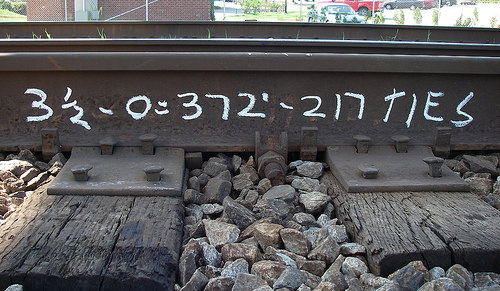 3½-0=372'-217 TIES